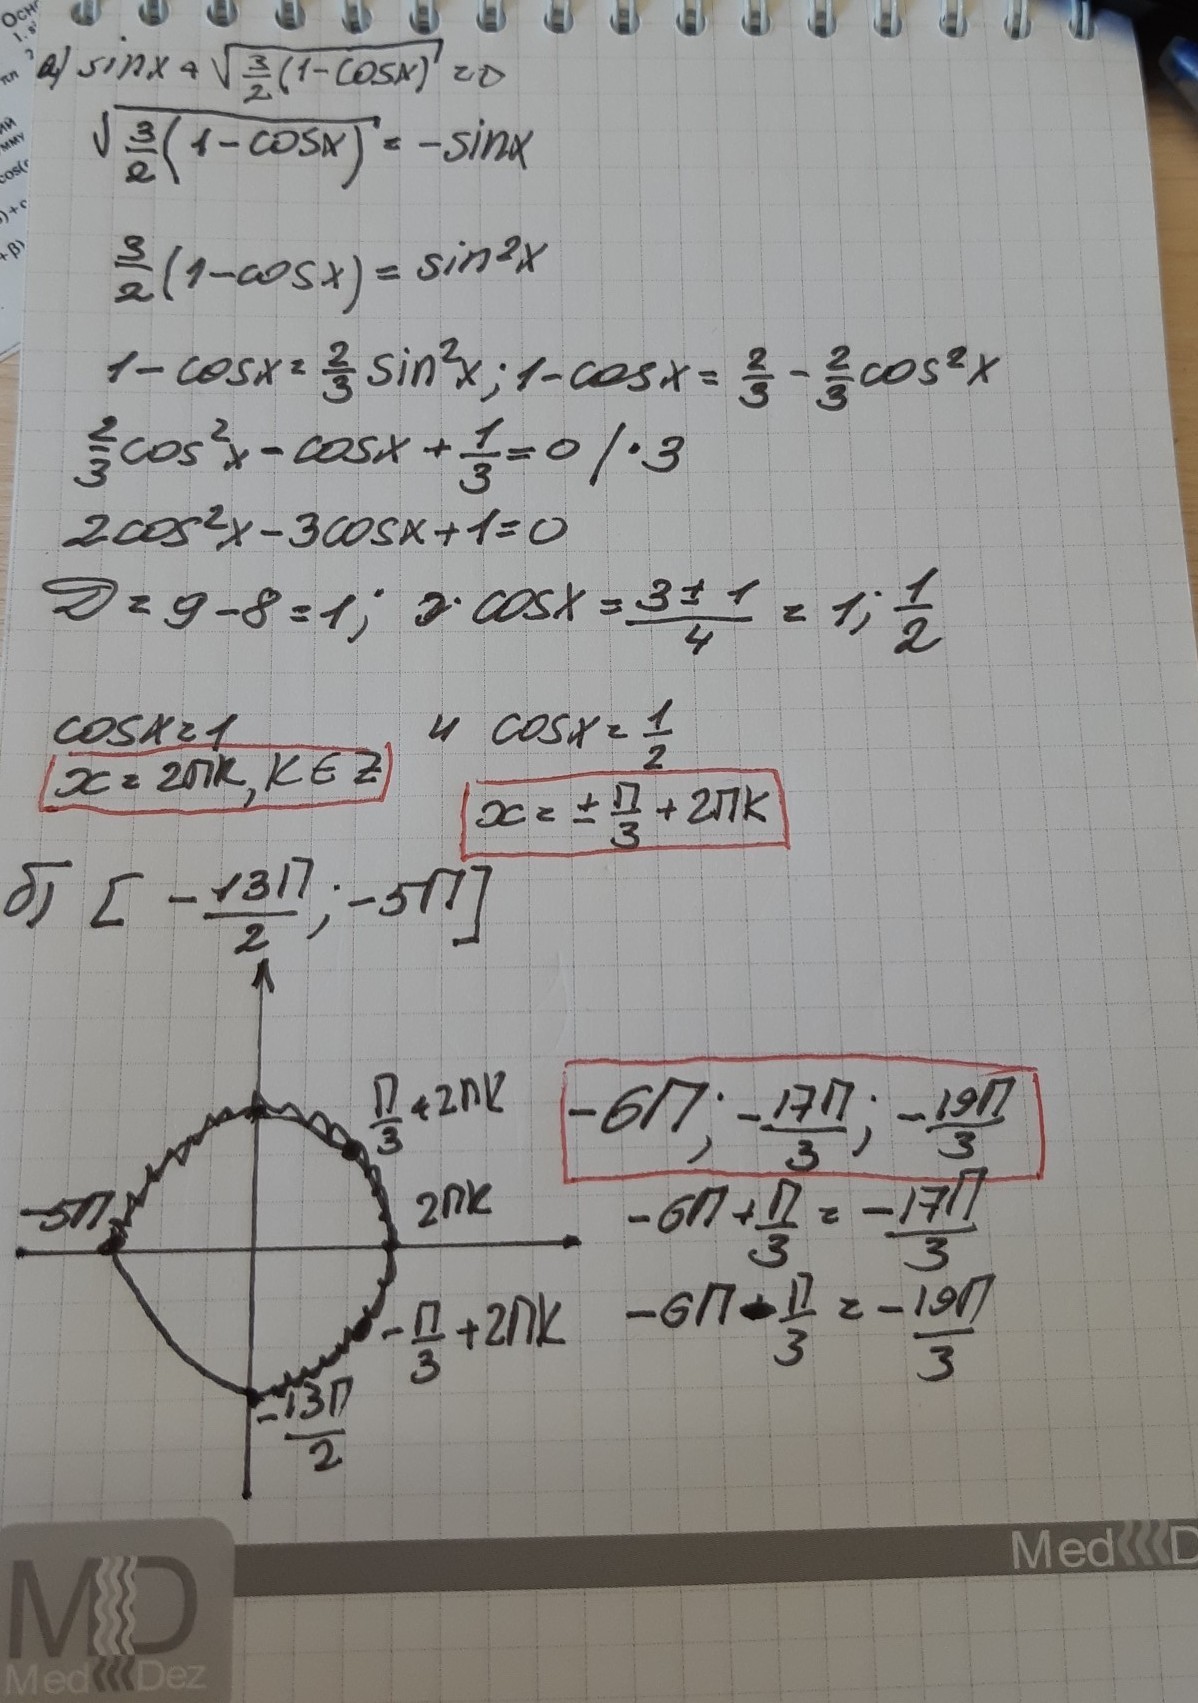 Осн
1. s
а) sinx + √(3/2(1-cosx)) = 0
√(3/2(1-cosx)) = -sinx
3/2(1-cosx) = sin²x
1-cosx = 2/3 sin²x; 1-cosx = 2/3 - 2/3 cos²x
2/3 cos²x - cosx + 1/3 = 0 / ·3
2cos²x - 3cosx + 1 = 0
D = 9 - 8 = 1; cosx = (3 ± 1)/4 = 1; 1/2
cosx = 1 и cosx = 1/2
x = 2πk, k ∈ Z x = ± π/3 + 2πk
б) [-13π/2; -5π]
π/3 + 2πk
-6π; -17π/3; -19π/3
-5π 2πk
-6π + π/3 = -17π/3
-π/3 + 2πk
-6π - π/3 = -19π/3
-13π/2
Med D
MD
Med Dez